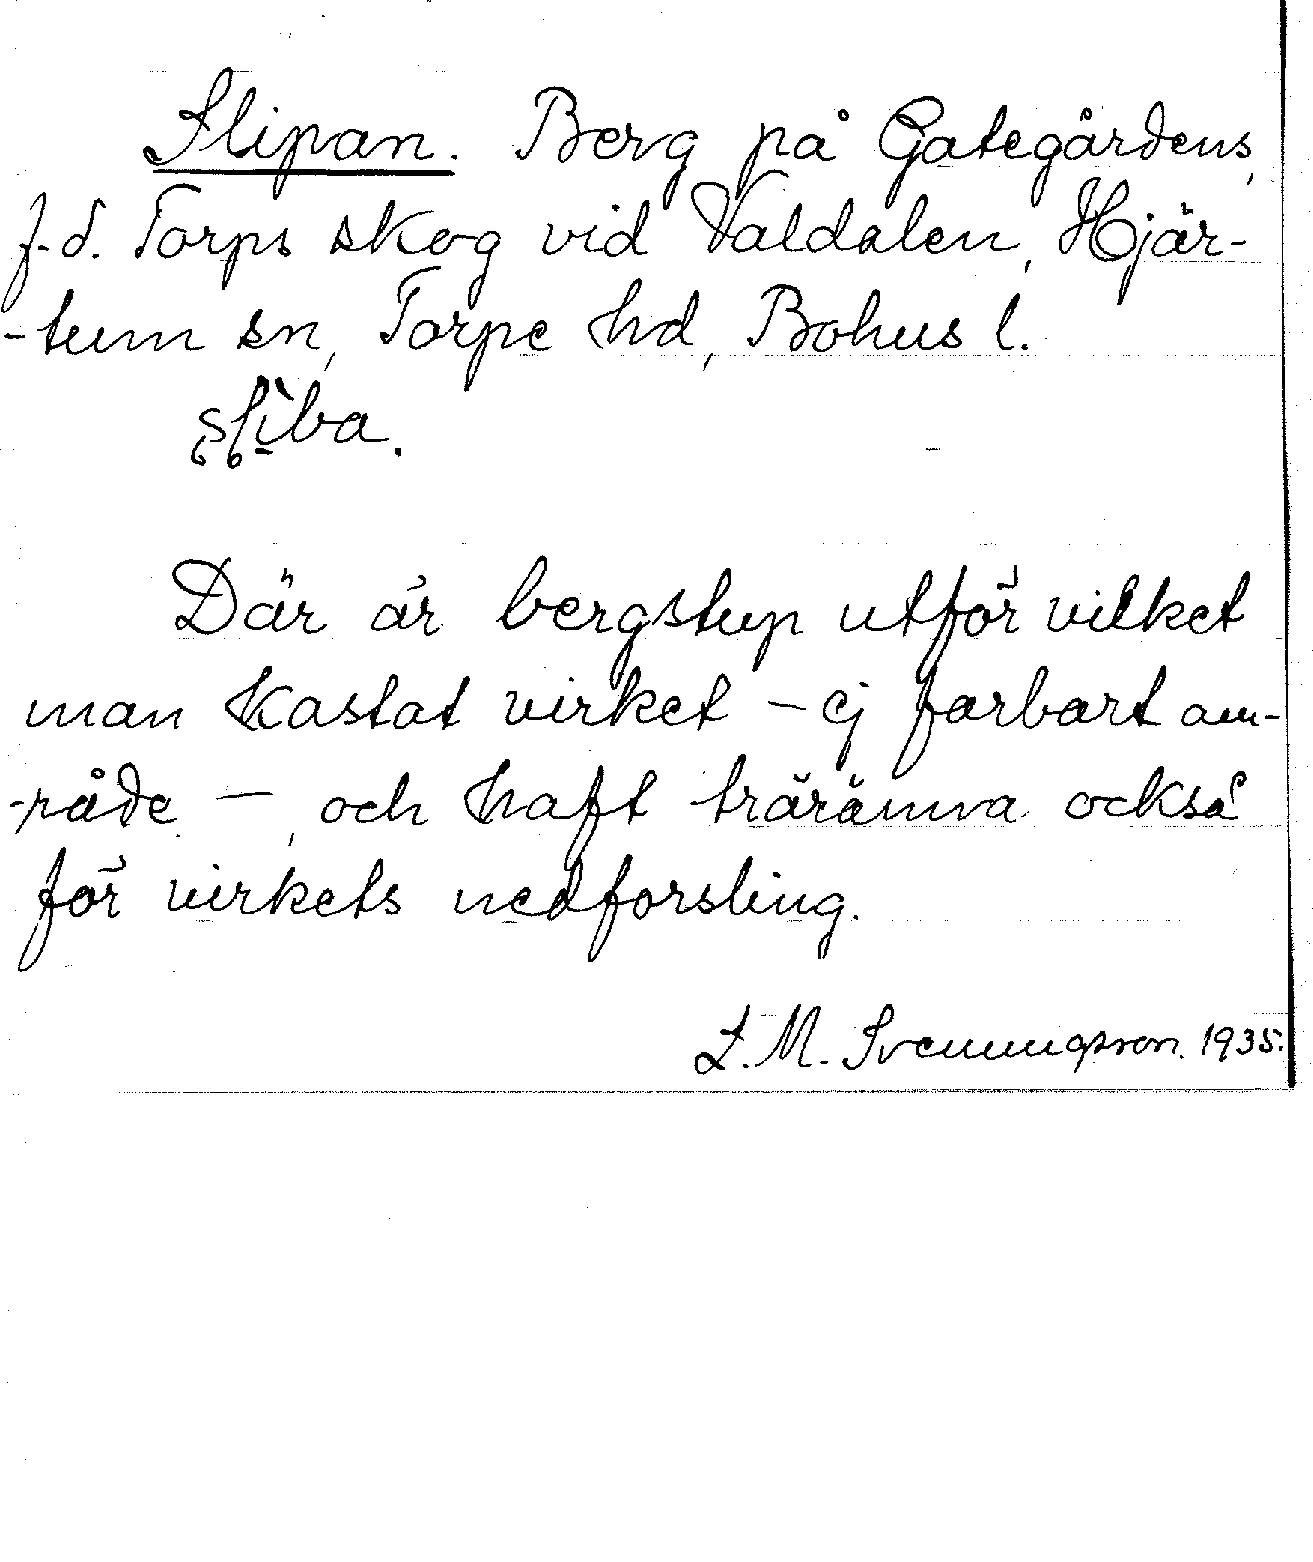 Slipan. Berg på Gategårdens,
f.d. Torps skog vid Valdalen, Hjär-
-tum sn, Torpe hd, Bohus l.
slìba.
Där är bergstup utför vilket
man kastat virket - ej farbart om-
-råde -, och haft träränna också
för virkets nedforsling.
L. M. Svenungsson. 1935.